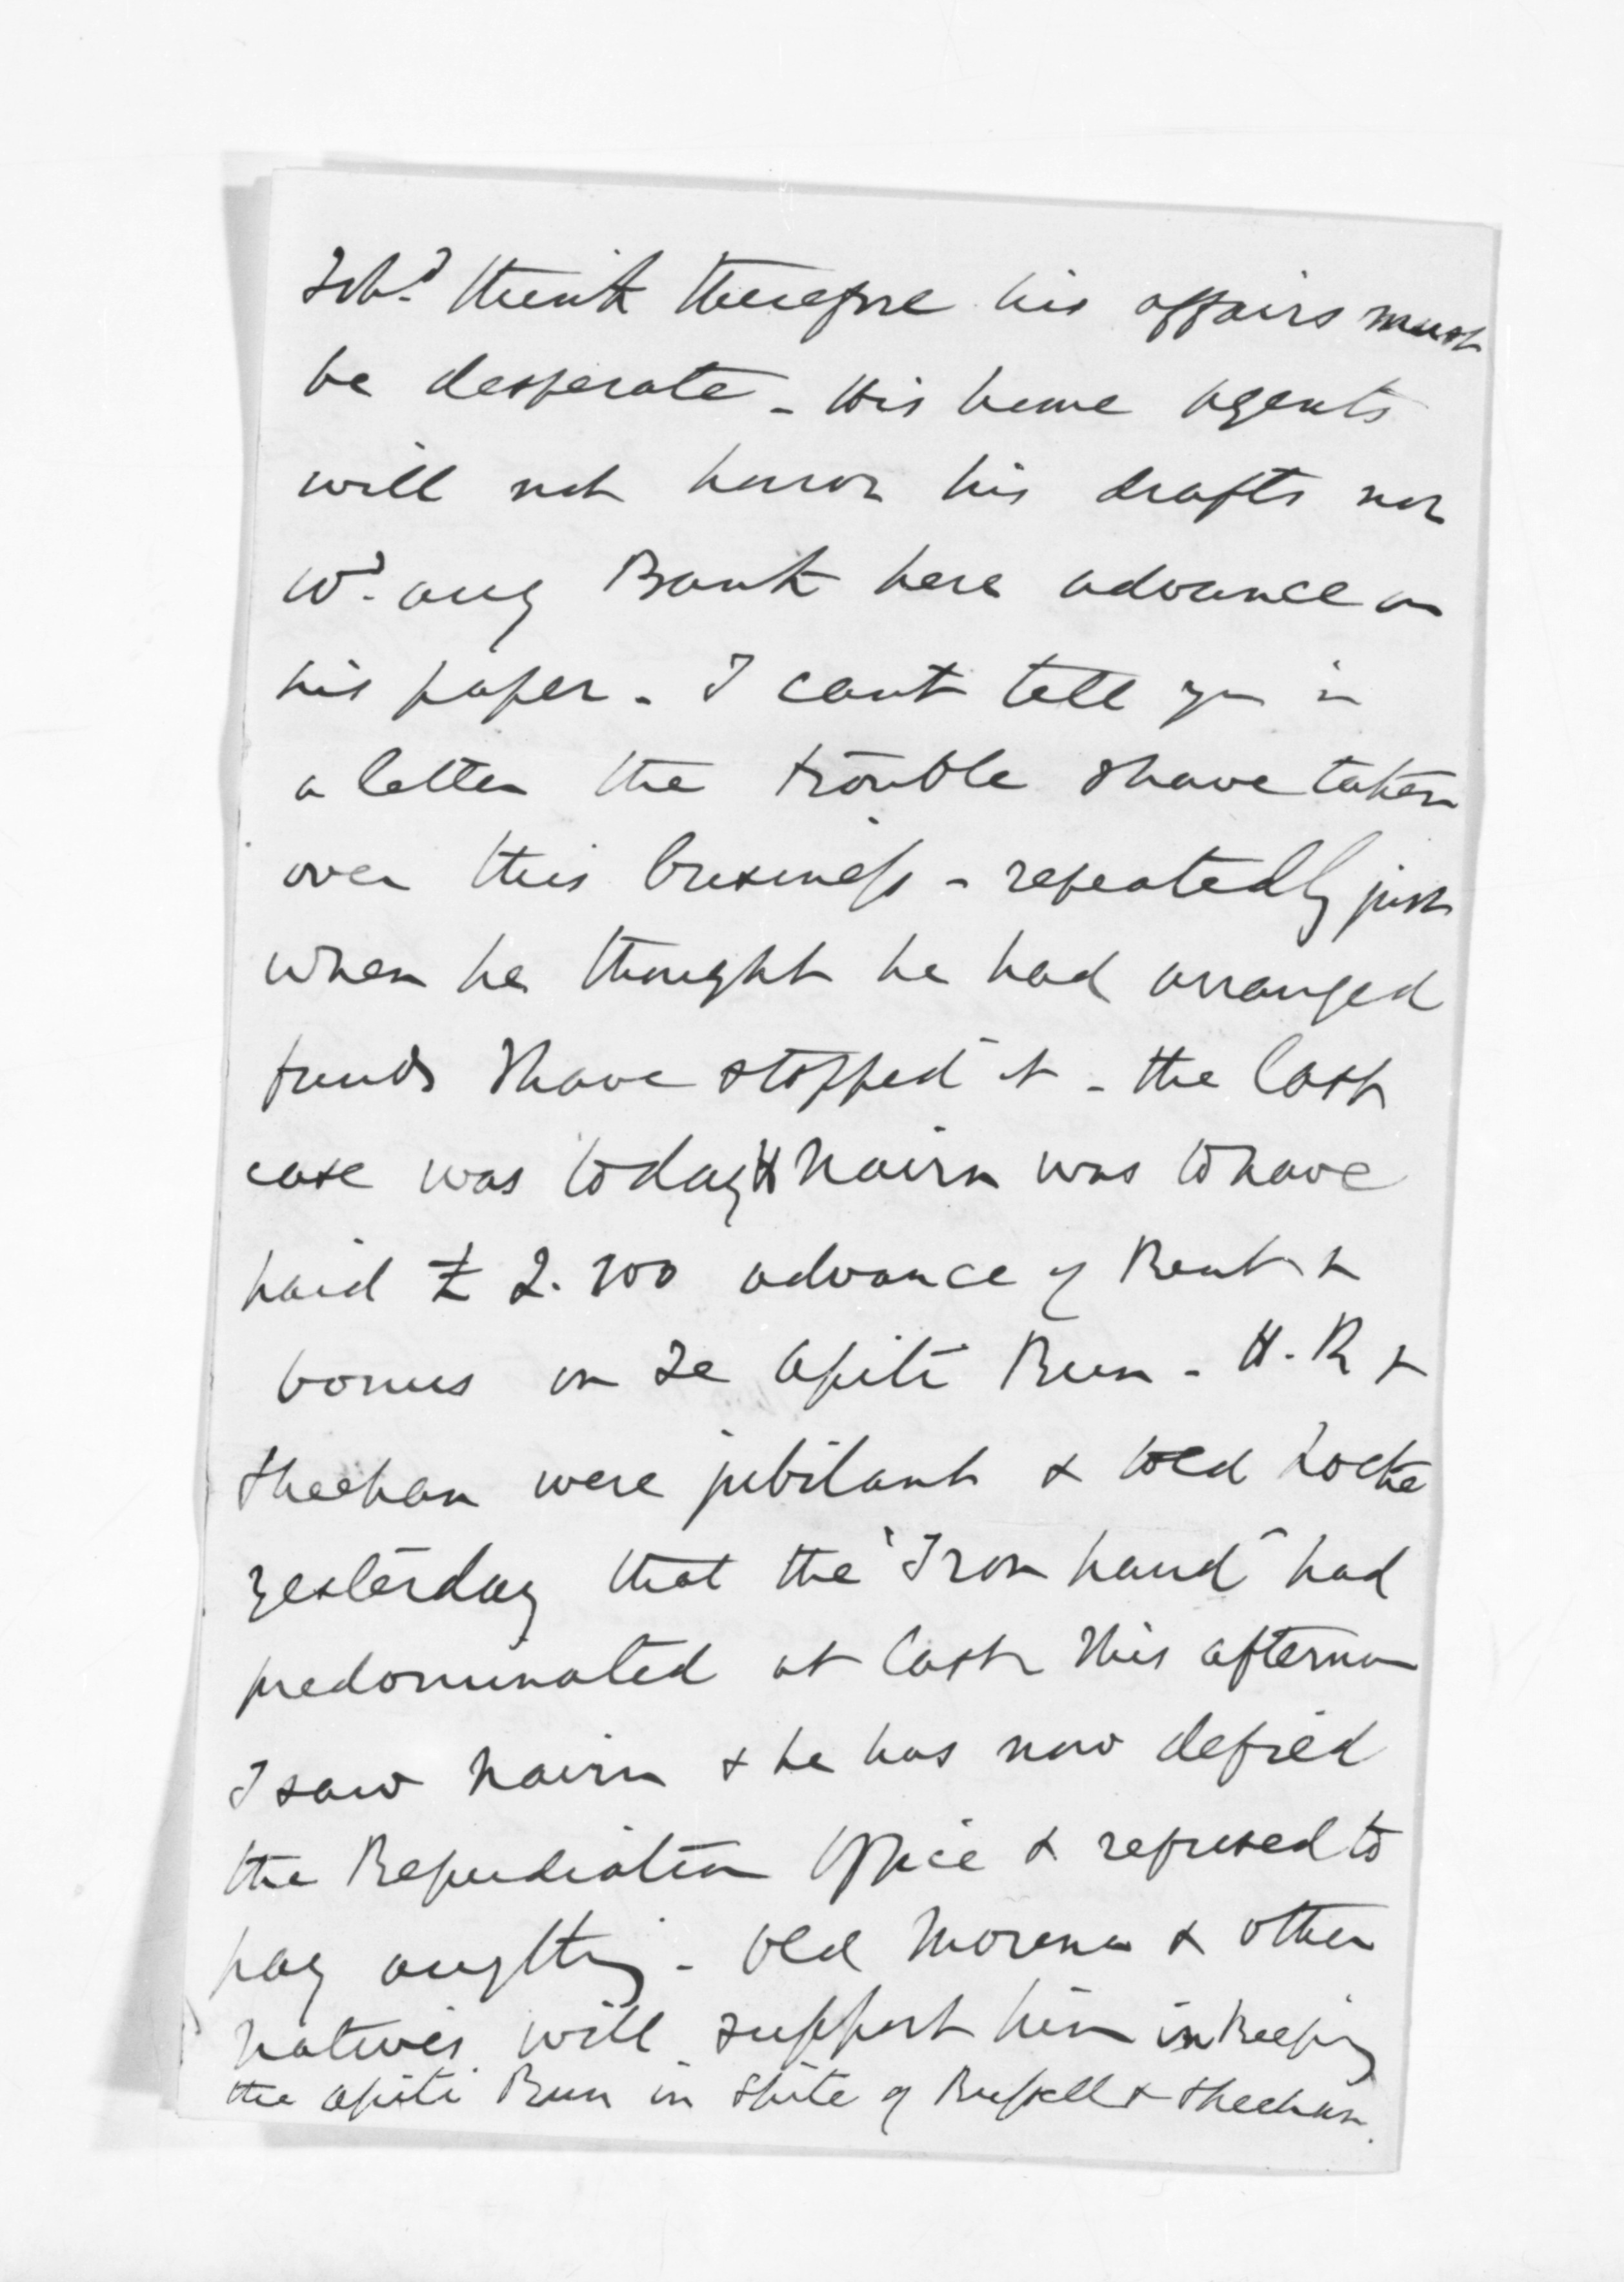 I shd think therefore his affairs must
be desperate - His home agents
will not honor his drafts nor
wd any Bank here advance on
his paper - I cant tell you in
a letter the trouble I have taken
over this business - repeatedly just
when he thought he had arranged
funds I have stopped it - the last
case was today Nairn was to have
paid £ 2.200 advance of Rent &
bonus on Te Apiti Run - H. R &
Sheehan were jubilant & told Locke
yesterday that the "Iron hand" had
predominated at last This afternoon
I saw Nairn & he has now defied
the Repudiation Office & refused to
pay anything - Old Morena & other
natives will support him in keeping
the Apiti Run in spite of Russell & Sheehan.